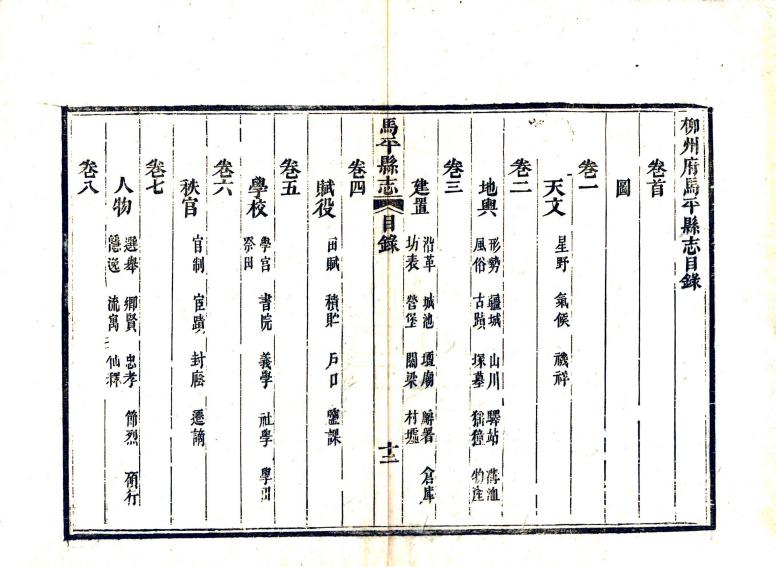 柳州府馬平縣志目錄
卷首
圖
卷一
天文 星野 氣候 禨祥
卷二
地輿 形勢 疆域 山川 驛站 溝洫
風俗 古蹟 塚墓 猺獞 物産
卷三
建置 沿革 城池 壇廟 廨署 倉庫
坊表 營堡 關梁 村墟
馬平縣志 目錄 十二
卷四
賦役 田賦 積貯 戶口 鹽課
卷五
學校 學宮 書院 義學 社學 學田
祭田
卷六
秩官 官制 宦蹟 封廕 遷謫
卷七
人物 選舉 鄉賢 忠孝 節烈 碩行
隱逸 流寓 仙釋
卷八